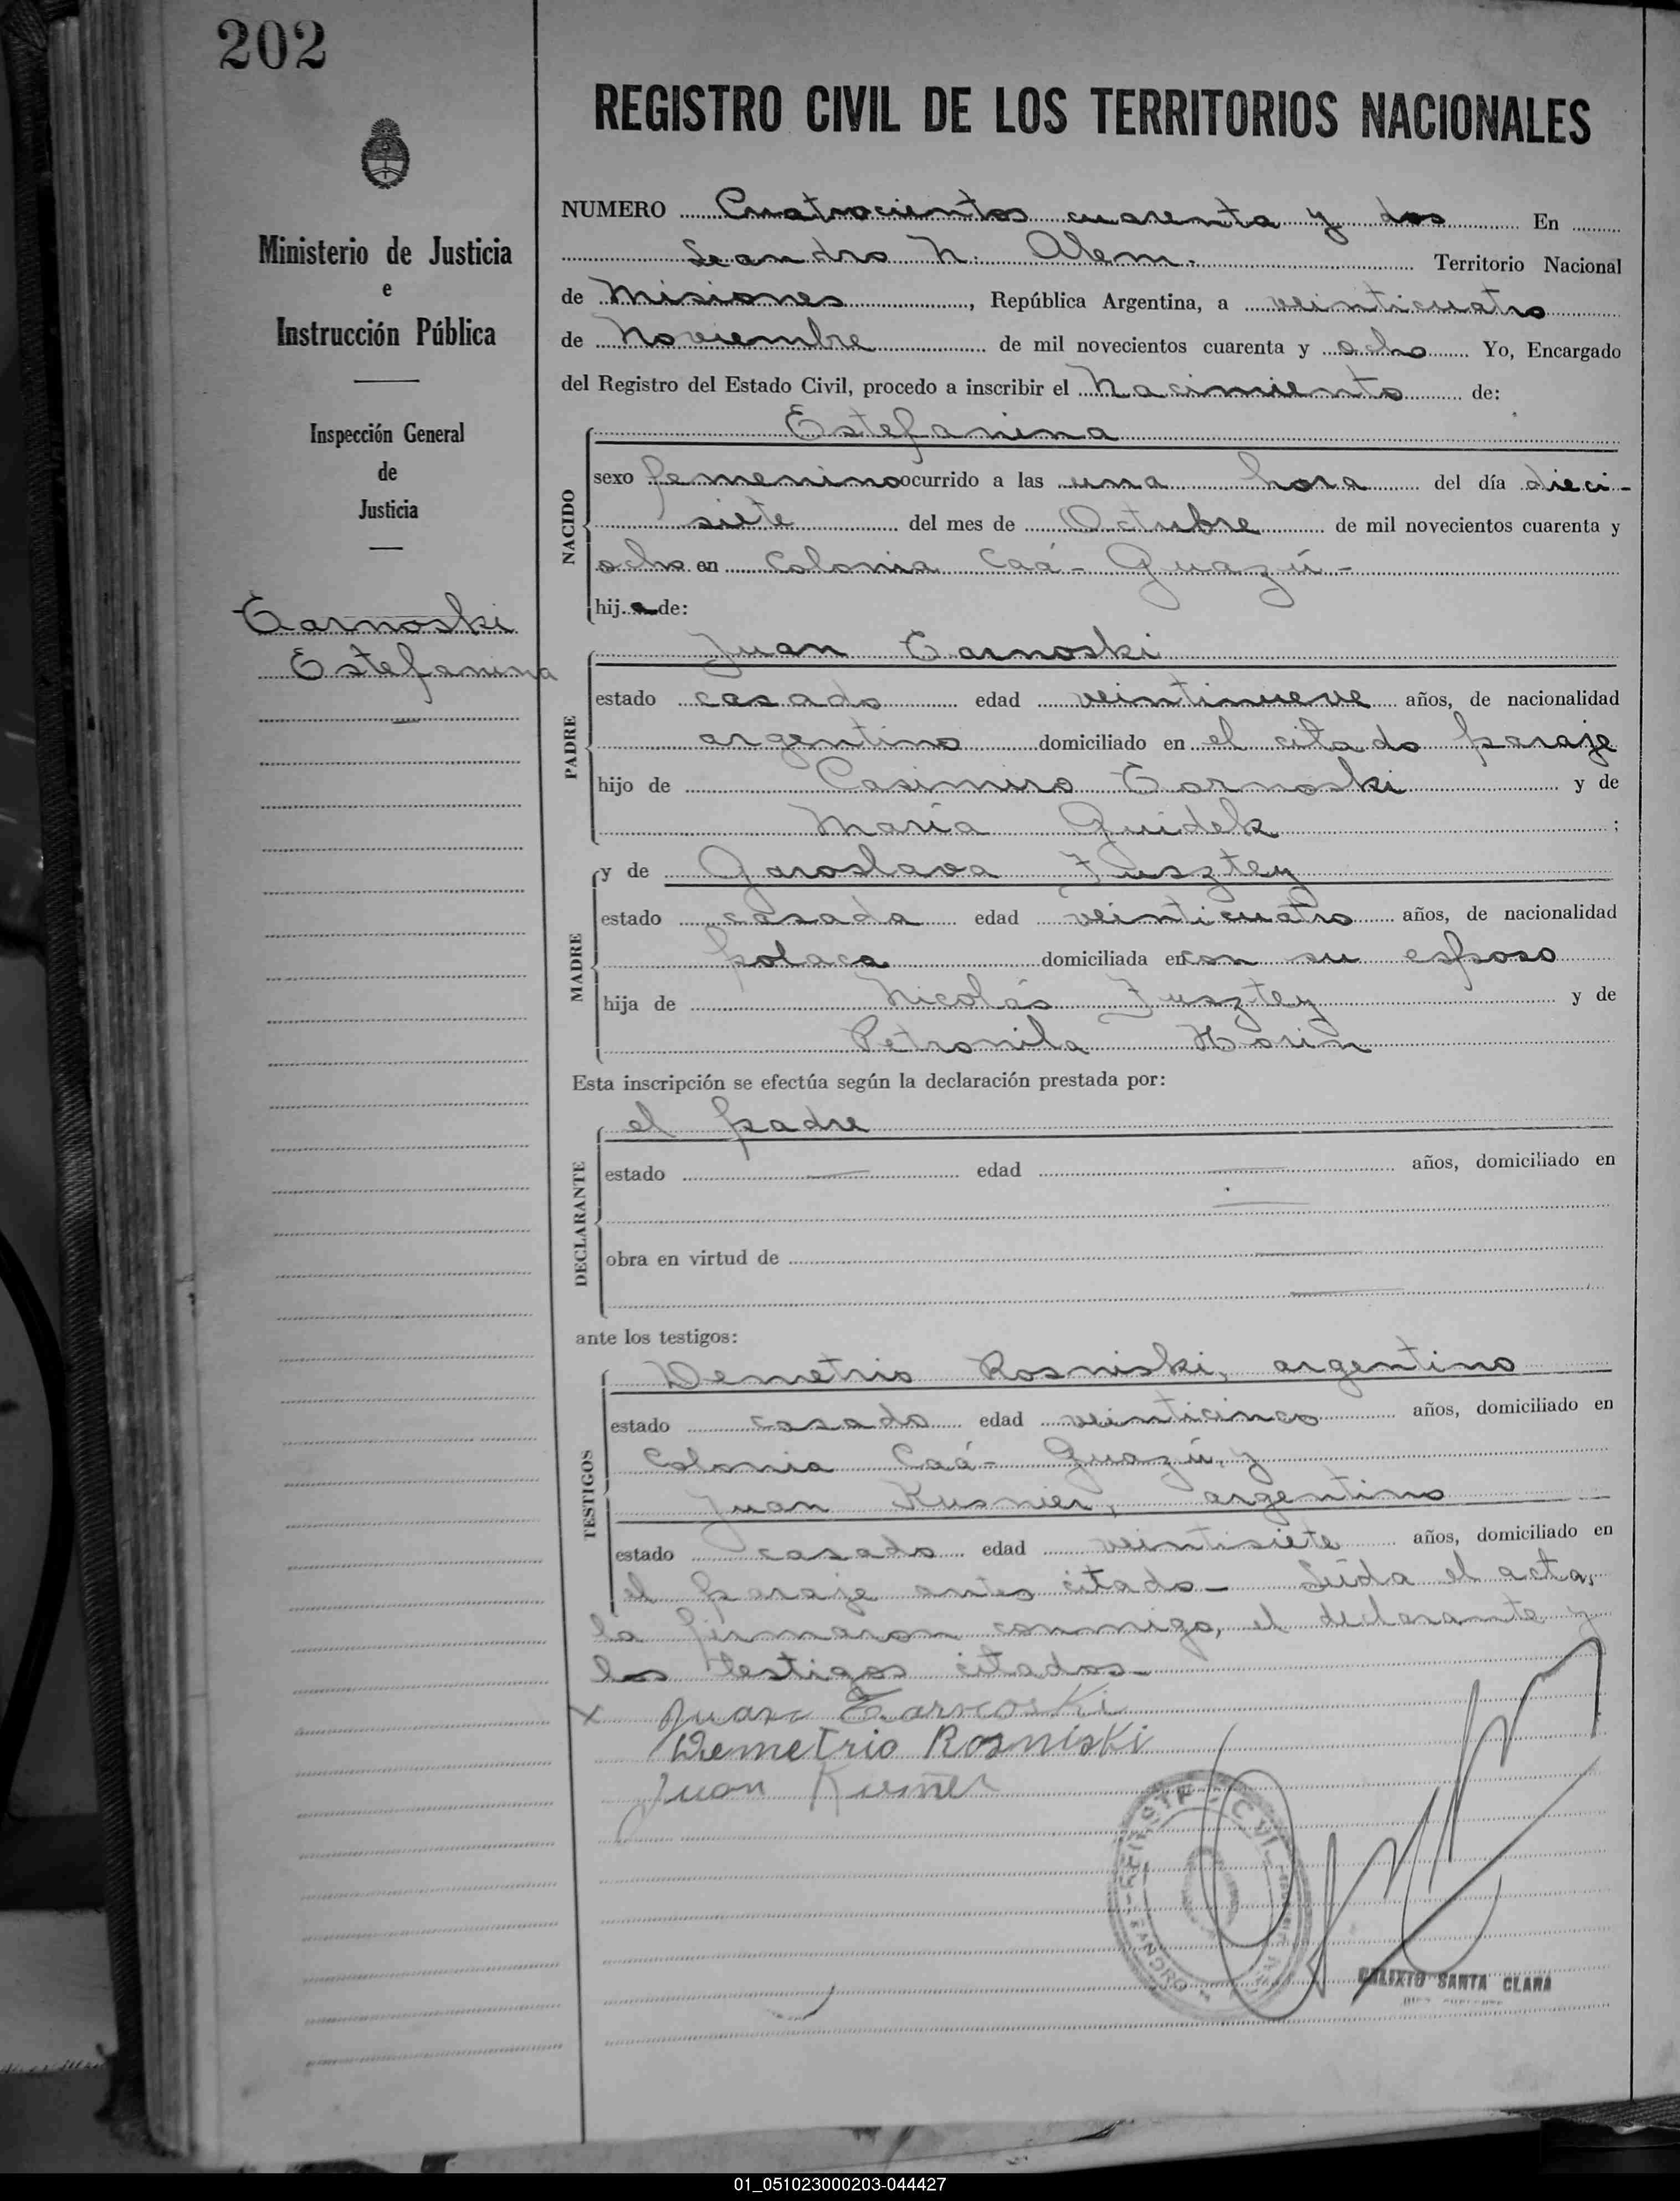 202
REGISTRO CIVIL DE LOS TERRITORIOS NACIONALES
Ministerio de Justicia
e
Instrucción Pública
Inspección General
de
Justicia
Tarnoski
Estefanina
NUMERO Cuatrocientos cuarenta y dos En
Leandro N. Alem. Territorio Nacional
de Misiones, República Argentina, a veinticuatro
de Noviembre de mil novecientos cuarenta y ocho Yo, Encargado
del Registro del Estado Civil, procedo a inscribir el Nacimiento de:
NACIDO
Estefanina
sexo femenino ocurrido a las una hora del día dieci-
siete del mes de Octubre de mil novecientos cuarenta y
ocho en Colonia Caá-Guazú-
hija de:
PADRE
Juan Tarnoski
estado casado edad veintinueve años, de nacionalidad
argentino domiciliado en el citado paraje
hijo de Casimiro Tarnoski y de
María Guidek;
MADRE
y de Jaroslava Fusztey
estado casada edad veinticuatro años, de nacionalidad
polaca domiciliada en con su esposo
hija de Nicolás Fusztey y de
Petronila Horin
Esta inscripción se efectúa según la declaración prestada por:
DECLARANTE
el padre
estado edad años, domiciliado en
obra en virtud de
ante los testigos:
TESTIGOS
Demetrio Rosniski, argentino
estado casado edad veinticinco años, domiciliado en
Colonia Caá-Guazú, y
Juan Kusnier, argentino
estado casado edad veintisiete años, domiciliado en
el paraje antes citado- Leída el acta,
la firmaron conmigo, el declarante y
los testigos citados-
x Juan Tarnoski
Demetrio Rosniski
Juan
CALIXTO SANTA CLARA
01_051023000203-044427